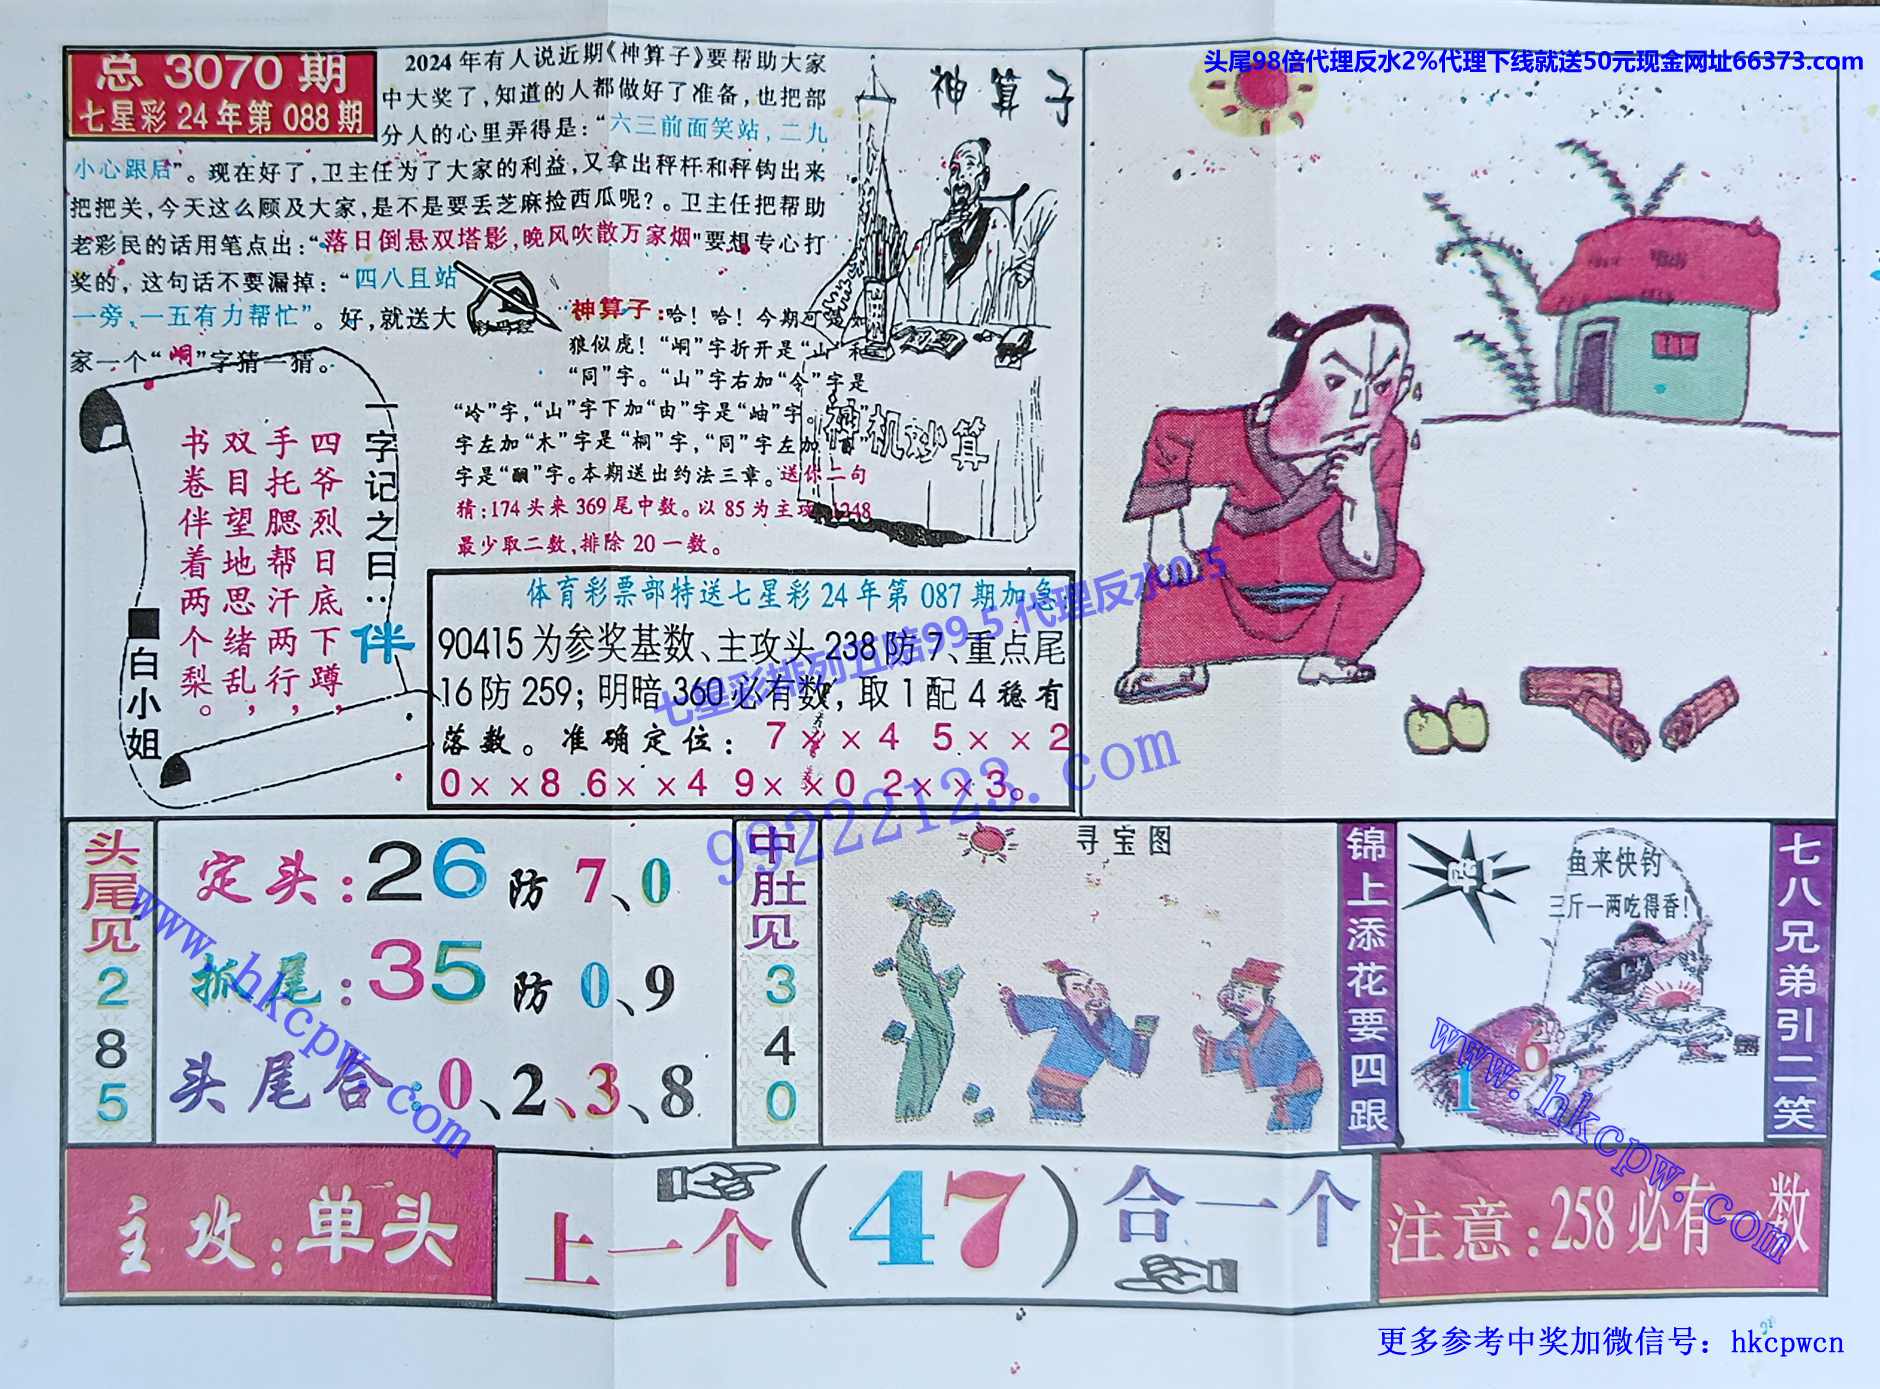 头尾98倍代理反水2%代理下线就送50元现金网址66373.com
总 3070 期
七星彩 24 年第 088 期
2024 年有人说近期《神算子》要帮助大家
中大奖了，知道的人都做好了准备，也把部
分人的心里弄得是：“六三前面笑站，二九
小心跟后”。现在好了，卫主任为了大家的利益，又拿出秤杆和秤钩出来
把把关，今天这么顾及大家，是不是要丢芝麻捡西瓜呢？。卫主任把帮助
老彩民的话用笔点出：“落日倒悬双塔影，晚风吹散万家烟”要想专心打
奖的，这句话不要漏掉：“四八且站
一旁、一五有力帮忙”。好，就送大
家一个“峒”字猜一猜。
神算子
神算子：哈！哈！今期可是如
狼似虎！“峒”字折开是“山”和
“同”字。“山”字右加“令”字是
“岭”字，“山”字下加“由”字是“岫”字。
字左加“木”字是“桐”字，“同”字左加
字是“酮”字。本期送出约法三章。送你二句
猜：174 头来 369 尾中数。以 85 为主攻，1248
最少取二数，排除 20 一数。
神机妙算
一字记之曰：伴
四爷烈日底下蹲，
手托腮帮汗两行，
双目望地思绪乱，
书卷伴着两个梨。
■白小姐
体育彩票部特送七星彩 24 年第 087 期加急
90415 为参奖基数、主攻头 238 防 7、重点尾
16 防 259；明暗 360 必有数，取 1 配 4 稳有
落数。准确定位：7××4 5××2
0××8 6××4 9××0 2××3。
七星彩排列五赔99.5 代理反水0.5
99222123.com
头尾见
2
8
5
定头：26 防 7、0
抓尾：35 防 0、9
头尾合：0、2、3、8
www.hkcpw.com
中肚见
3
4
0
寻宝图
锦上添花要四跟
鱼来快钓
三斤一两吃得香！
6
1
www.hkcpw.com
七八兄弟引二笑
主攻：单头
上一个（47）合一个
注意：258 必有一数
更多参考中奖加微信号：hkcpwcn